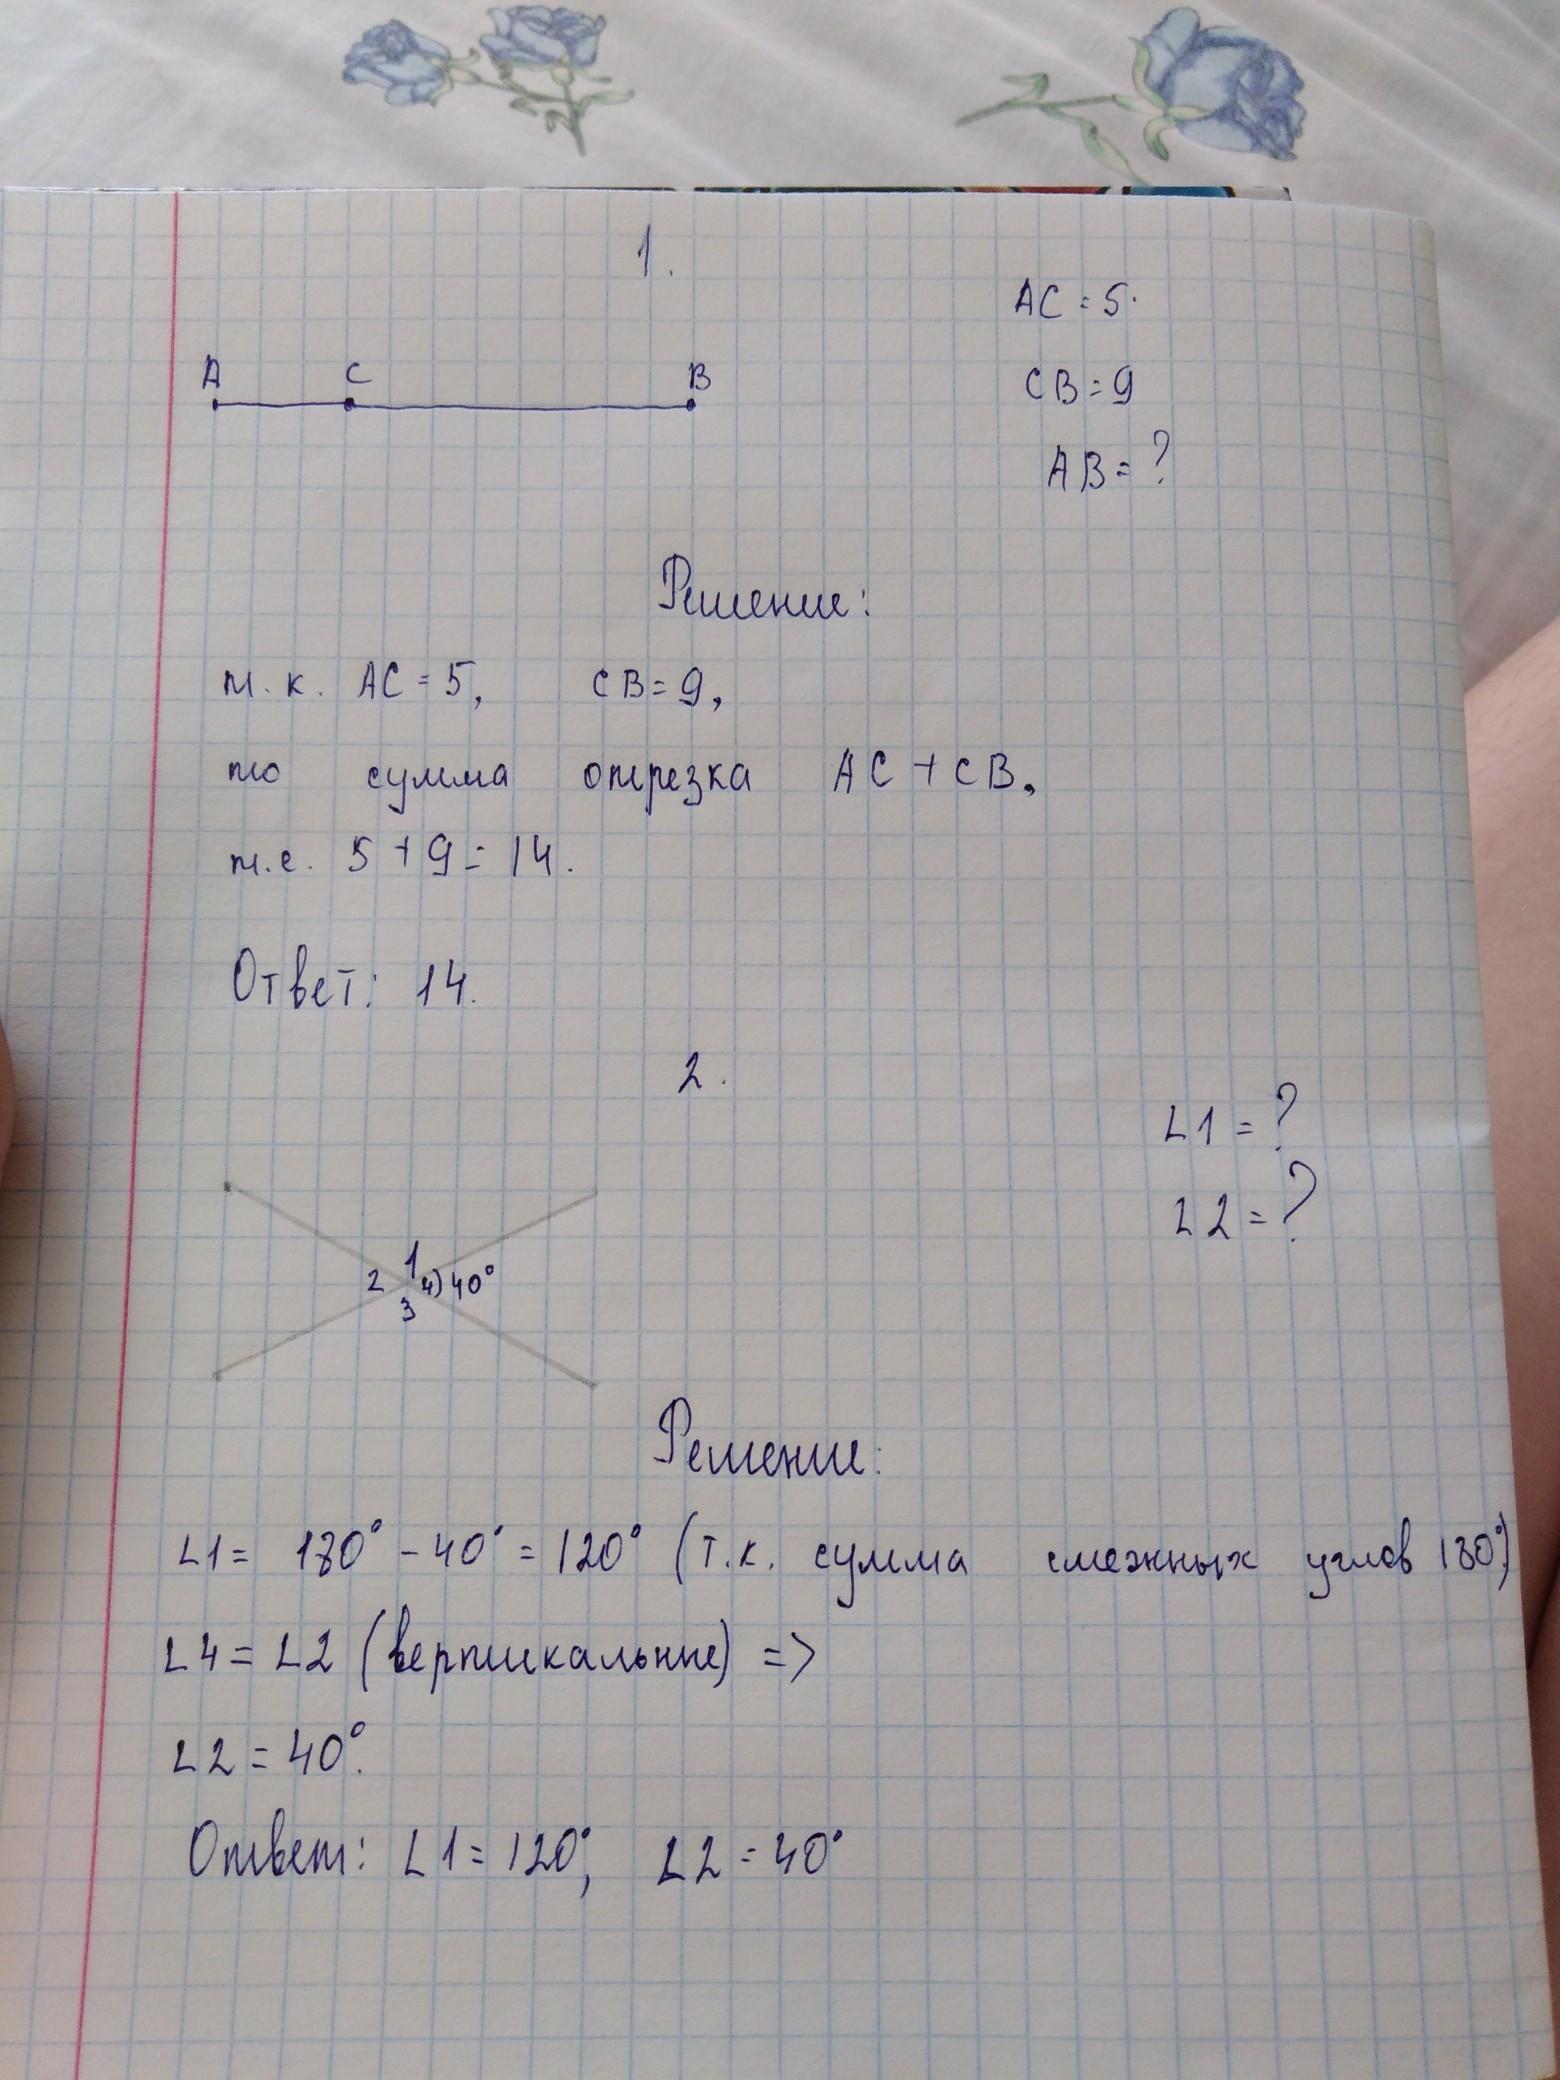 1.
AC = 5.
A C B
CB = 9
AB = ?
Решение:
т.к. AC = 5, CB = 9,
то сумма отрезка AC + CB,
т.е. 5 + 9 = 14.
Ответ: 14.
2.
∠1 = ?
∠2 = ?
1
2 4) 40°
3
Решение:
∠1 = 180° - 40° = 120° (т.к. сумма смежных углов 180°)
∠4 = ∠2 (вертикальные) =>
∠2 = 40°.
Ответ: ∠1 = 120°, ∠2 = 40°